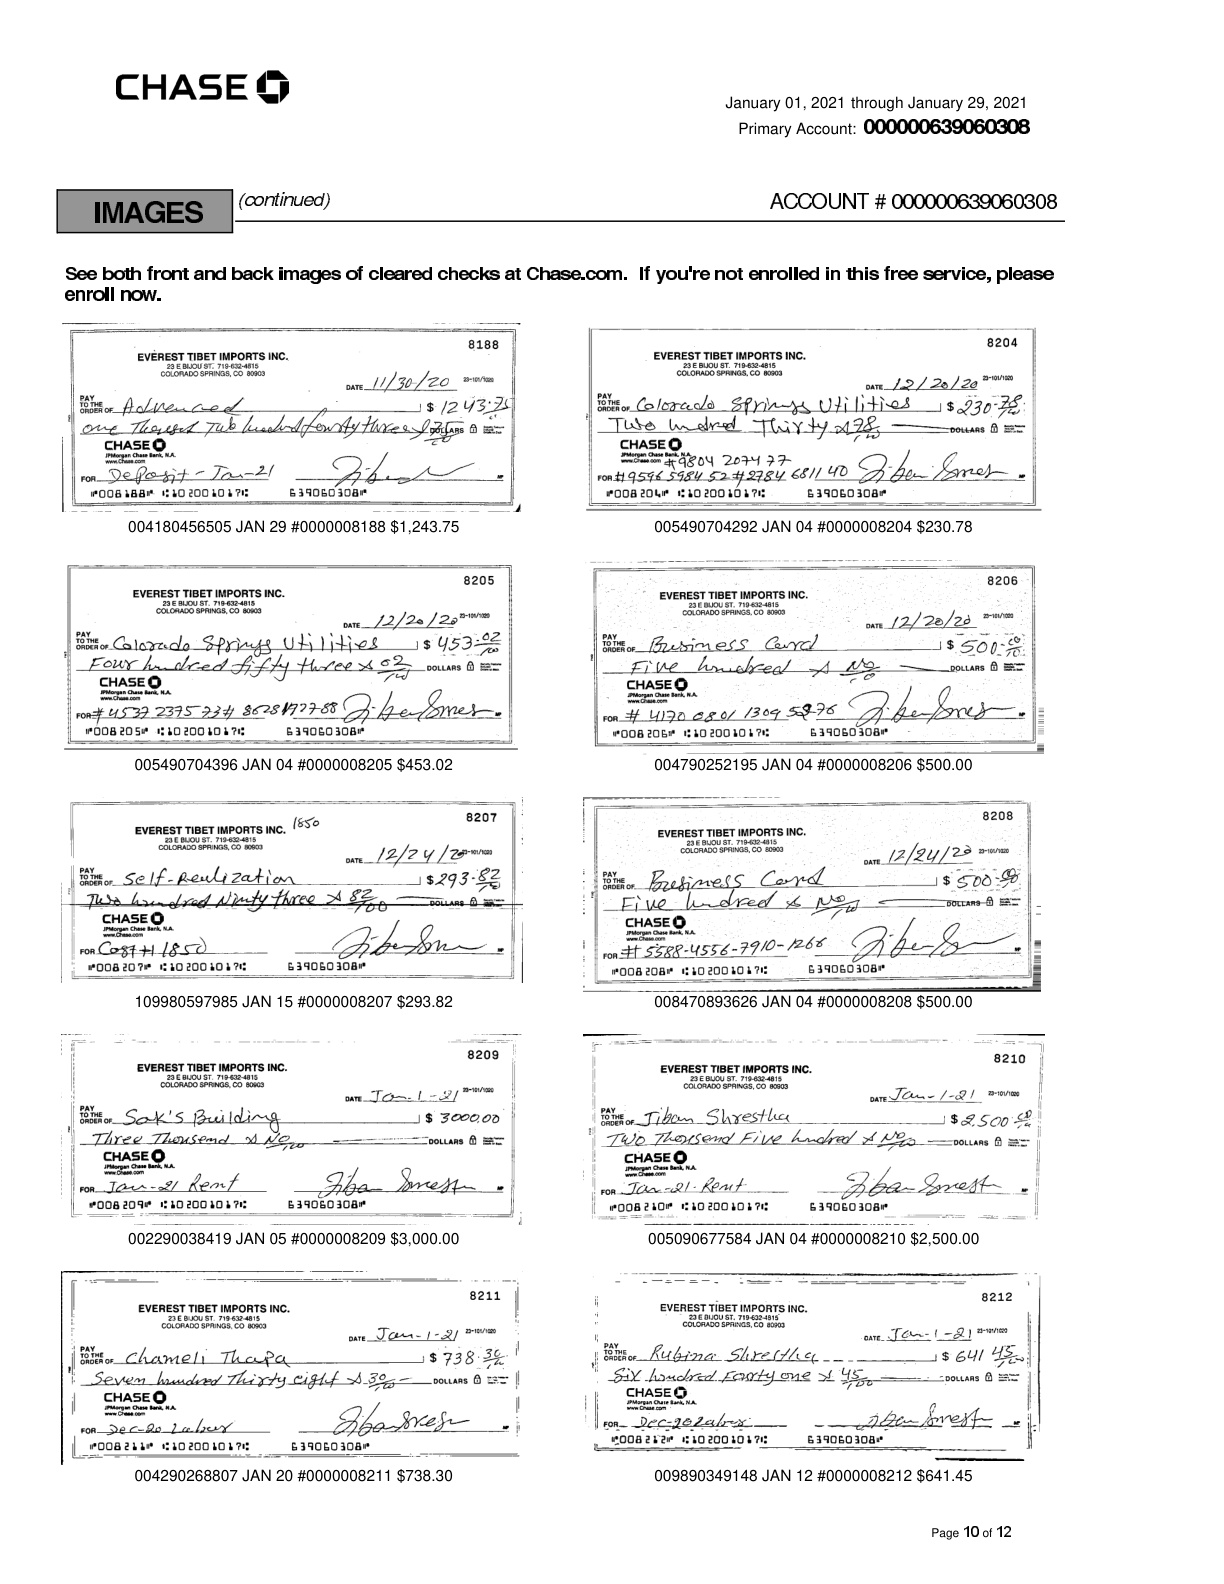 CHASE
January 01, 2021 through January 29, 2021
Primary Account: 000000639060308
IMAGES (continued) ACCOUNT # 000000639060308
See both front and back images of cleared checks at Chase.com. If you're not enrolled in this free service, please
enroll now.
8188
EVEREST TIBET IMPORTS INC.
23 E BIJOU ST. 719-632-4815
COLORADO SPRINGS, CO 80903
DATE 11/30/20 23-101/1020
PAY TO THE ORDER OF Advanced $ 1243.75
one Thousand Two hundred fourty three & 75 DOLLARS
CHASE
JPMorgan Chase Bank, N.A.
www.Chase.com
FOR Deposit - Jan-21
008188 102001017 639060308
004180456505 JAN 29 #0000008188 $1,243.75
8204
EVEREST TIBET IMPORTS INC.
23 E BIJOU ST. 719-632-4815
COLORADO SPRINGS, CO 80903
DATE 12/20/20 23-101/1020
PAY TO THE ORDER OF Colorado Springs Utilities $ 230.78/100
Two hndred Thirty & 78/100 DOLLARS
CHASE
JPMorgan Chase Bank, N.A.
www.Chase.com
#9804 2074 77
FOR #9596 5984 52 #2784 6811 40
008204 102001017 639060308
005490704292 JAN 04 #0000008204 $230.78
8205
EVEREST TIBET IMPORTS INC.
23 E BIJOU ST. 719-632-4815
COLORADO SPRINGS, CO 80903
DATE 12/20/20 23-101/1020
PAY TO THE ORDER OF Colorado Springs Utilities $ 453.02/100
Four hundred fifty three & 02/100 DOLLARS
CHASE
JPMorgan Chase Bank, N.A.
www.Chase.com
FOR # 4537 2375 73
008205 102001017 639060308
005490704396 JAN 04 #0000008205 $453.02
8206
EVEREST TIBET IMPORTS INC.
23 E BIJOU ST. 719-632-4815
COLORADO SPRINGS, CO 80903
DATE 12/20/20 23-101/1020
PAY TO THE ORDER OF Business Card $ 500.00
Five hundred & No DOLLARS
CHASE
JPMorgan Chase Bank, N.A.
www.Chase.com
FOR # 4170 0801 1309 5876
008206 102001017 639060308
004790252195 JAN 04 #0000008206 $500.00
8207
EVEREST TIBET IMPORTS INC. 1850
23 E BIJOU ST. 719-632-4815
COLORADO SPRINGS, CO 80903
DATE 12/24/20 23-101/1020
PAY TO THE ORDER OF Self-Realization $ 293.82
Two hundred Ninty three & 82/100 DOLLARS
CHASE
JPMorgan Chase Bank, N.A.
www.Chase.com
FOR Cost # 1850
008207 102001017 639060308
109980597985 JAN 15 #0000008207 $293.82
8208
EVEREST TIBET IMPORTS INC.
23 E BIJOU ST. 719-632-4815
COLORADO SPRINGS, CO 80903
DATE 12/24/20 23-101/1020
PAY TO THE ORDER OF Business Card $ 500.00
Five hundred & No/100 DOLLARS
CHASE
JPMorgan Chase Bank, N.A.
www.Chase.com
FOR # 5588-4556-7910-1266
008208 102001017 639060308
008470893626 JAN 04 #0000008208 $500.00
8209
EVEREST TIBET IMPORTS INC.
23 E BIJOU ST. 719-632-4815
COLORADO SPRINGS, CO 80903
DATE Jan-1-21 23-101/1020
PAY TO THE ORDER OF Sok's Building $ 3000.00
Three Thousand & No/100 DOLLARS
CHASE
JPMorgan Chase Bank, N.A.
www.Chase.com
FOR Jan-21 Rent
008209 102001017 639060308
002290038419 JAN 05 #0000008209 $3,000.00
8210
EVEREST TIBET IMPORTS INC.
23 E BIJOU ST. 719-632-4815
COLORADO SPRINGS, CO 80903
DATE Jan-1-21 23-101/1020
PAY TO THE ORDER OF Jiban Shrestha $ 2,500.00
Two Thousand Five hundred & No DOLLARS
CHASE
JPMorgan Chase Bank, N.A.
www.Chase.com
FOR Jan-21-Rent
008210 102001017 639060308
005090677584 JAN 04 #0000008210 $2,500.00
8211
EVEREST TIBET IMPORTS INC.
23 E BIJOU ST. 719-632-4815
COLORADO SPRINGS, CO 80903
DATE Jan-1-21 23-101/1020
PAY TO THE ORDER OF Chameli Thapa $ 738.30
Seven hundred Thirty eight & 30/100 DOLLARS
CHASE
JPMorgan Chase Bank, N.A.
www.Chase.com
FOR Dec-20 Labur
008211 102001017 639060308
004290268807 JAN 20 #0000008211 $738.30
8212
EVEREST TIBET IMPORTS INC.
23 E BIJOU ST. 719-632-4815
COLORADO SPRINGS, CO 80903
DATE Jan-1-21 23-101/1020
PAY TO THE ORDER OF Rubina Shrestha $ 641 45/100
Six hundred Fourty one & 45/100 DOLLARS
CHASE
JPMorgan Chase Bank, N.A.
www.Chase.com
FOR Dec-20 Labur
008212 102001017 639060308
009890349148 JAN 12 #0000008212 $641.45
Page 10 of 12